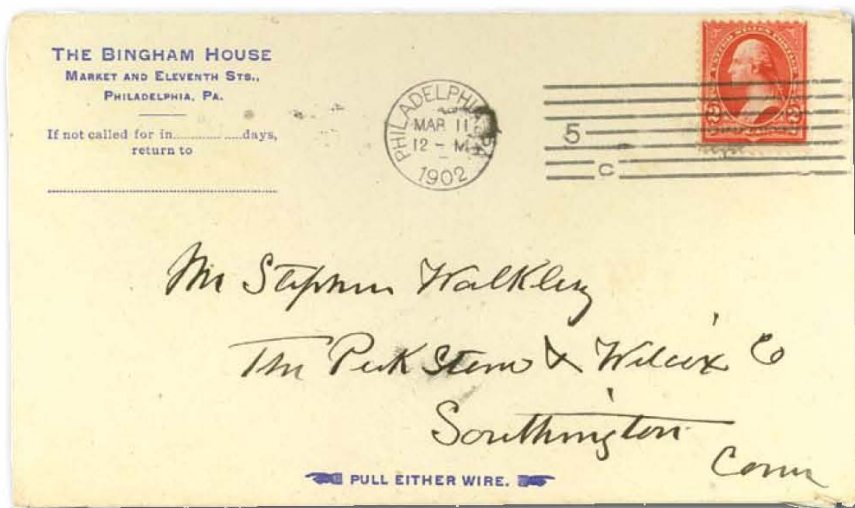 THE BINGHAM HOUSE
MARKET AND ELEVENTH STS.,
PHILADELPHIA, PA.
If not called for in............ .....days,
return to
PHILADELPHIA, PA
MAR 11
12 - M
1902
5
C
UNITED STATES POSTAGE
Mr Stephen Walkley
The Peck Stow & Wilcox Co
Southington
Conn
PULL EITHER WIRE.